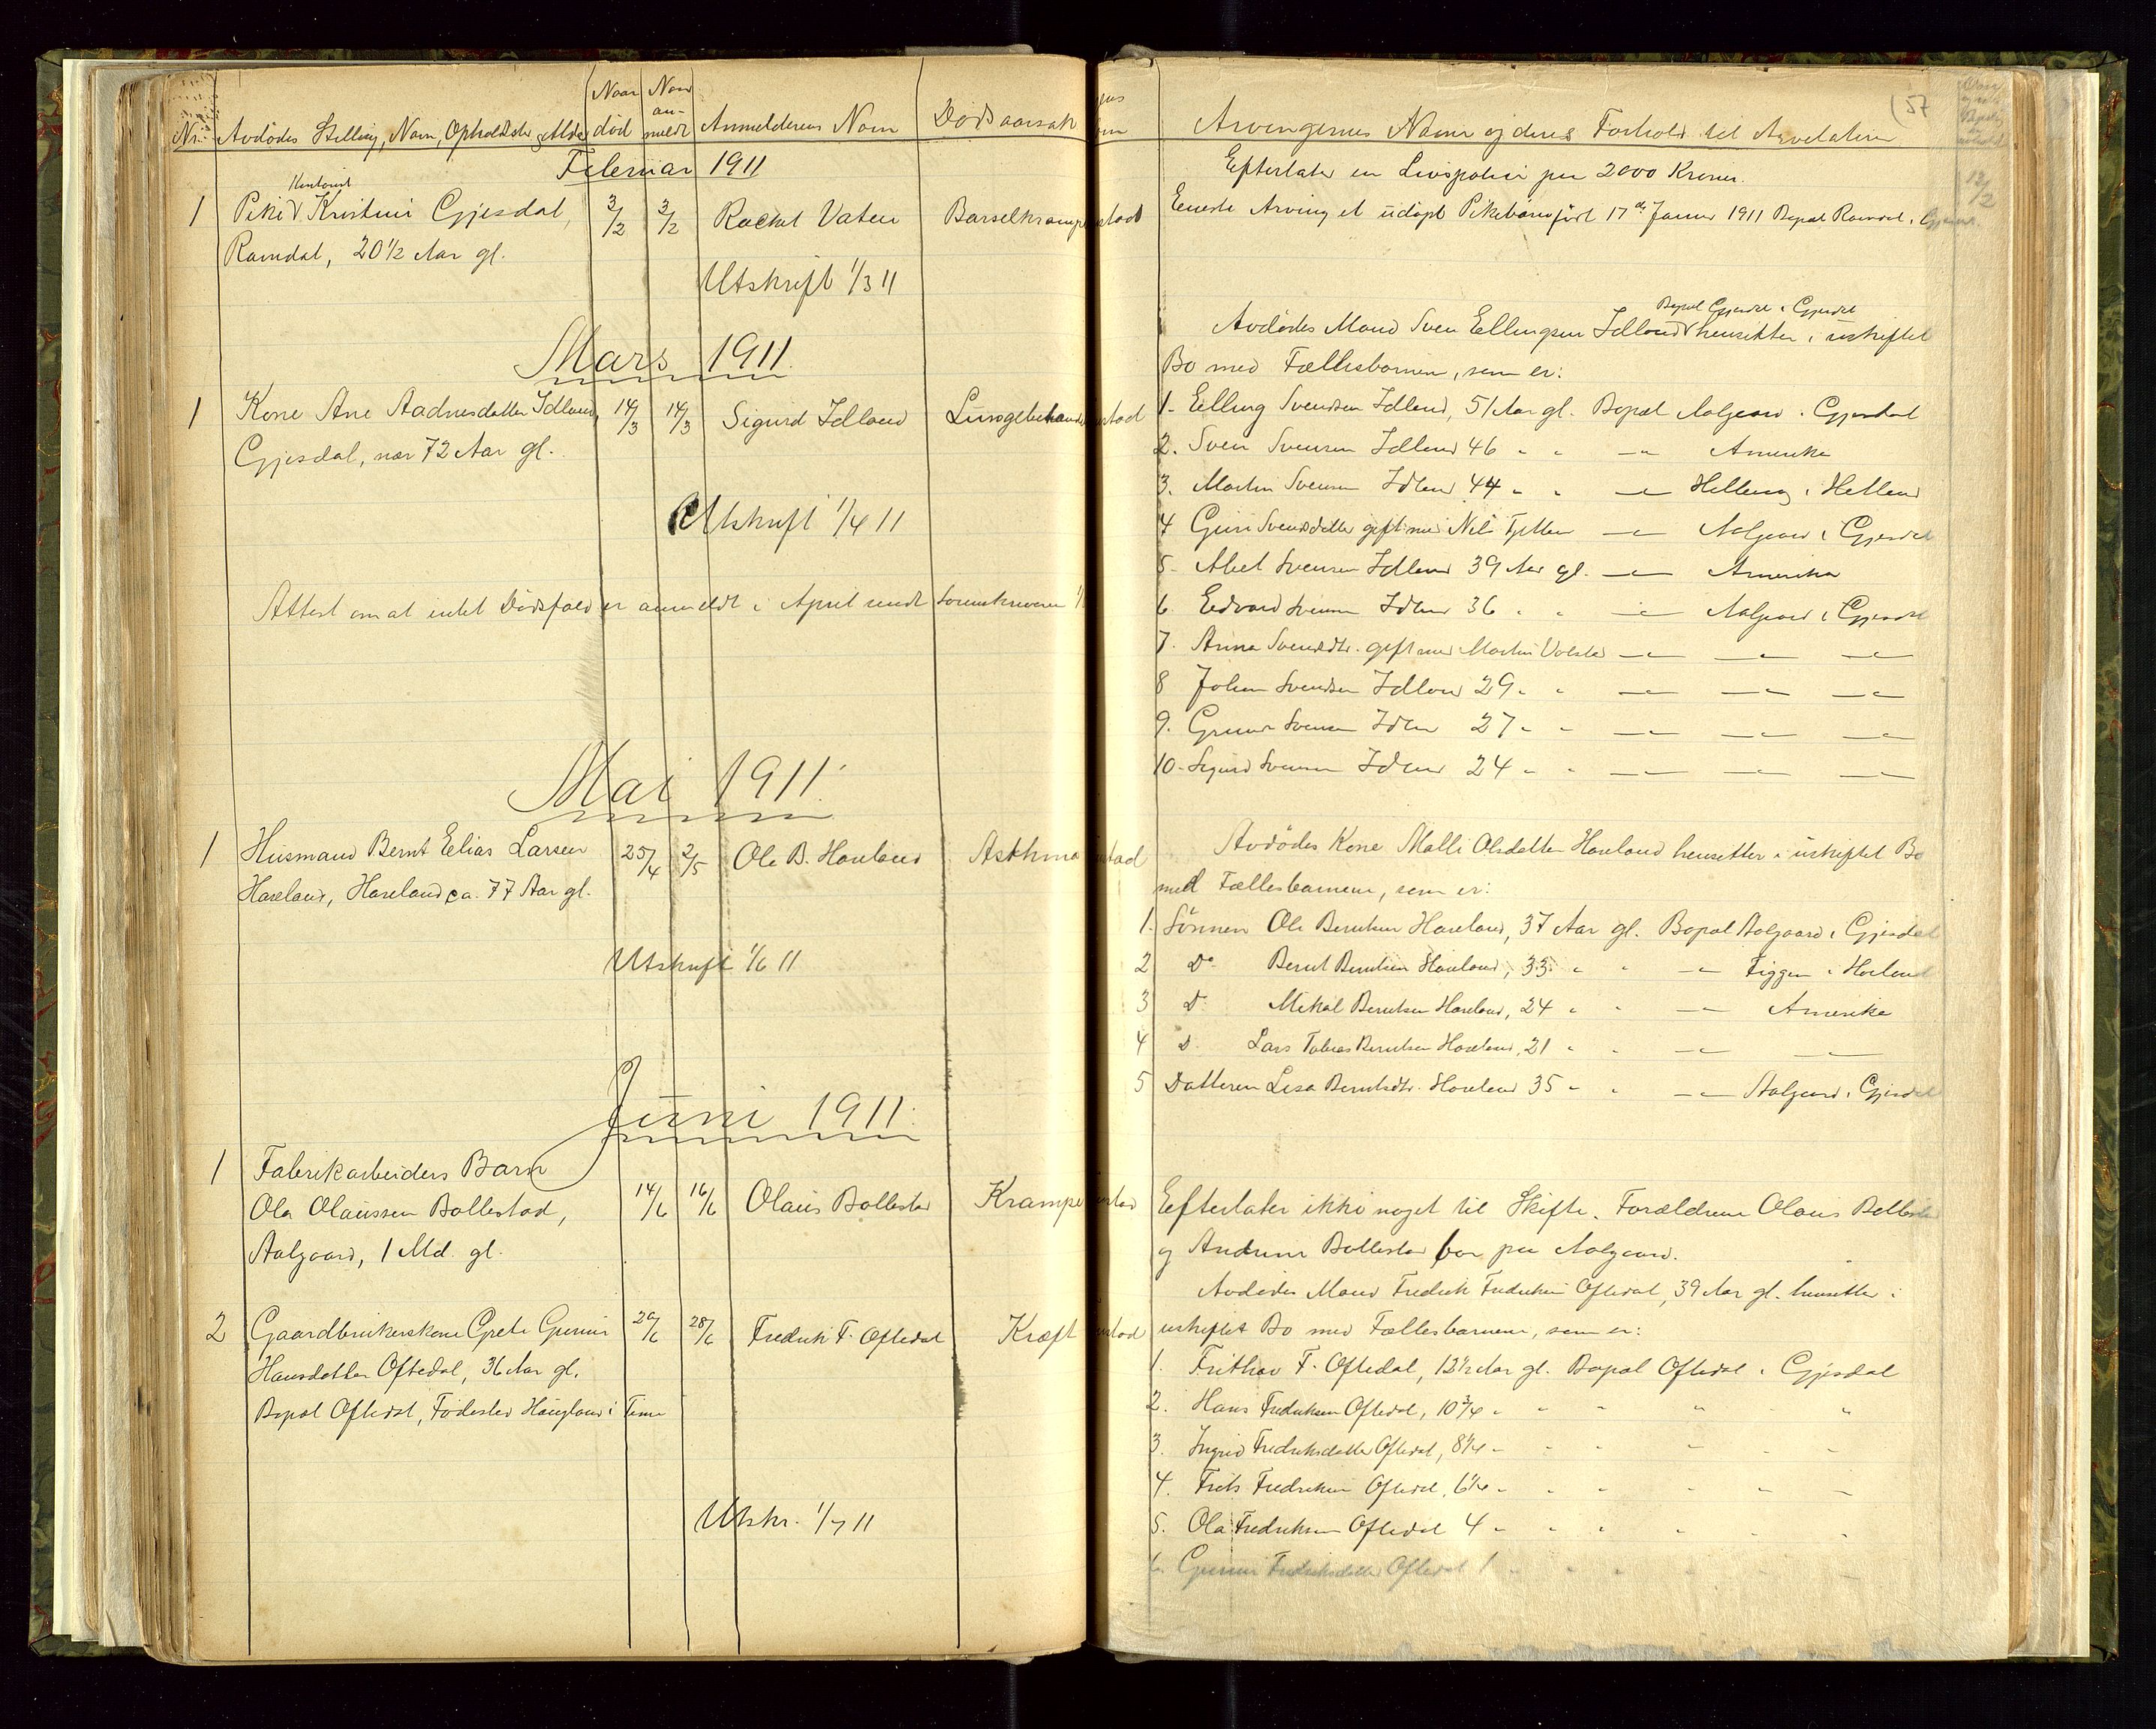 Nr. Avdödes Stilling, Navn, Opholdssted, Alder Naar död Naar an- meldt Anmelderens Navn Dödsaarsak
Februar 1911
1 Pike Kristine Gjesdal, 3/2 3/2 Rachel Vaten Barselkrampe
Ramdal, 20 1/2 Aar gl.
Utskrift 1/3 11
Mars 1911.
1 Kone Ane Aadnesdatter Idland, 14/3 14/3 Sigurd Idland
Gjesdal, nær 72 Aar gl.
Utskrift 1/4 11
Attest om at intet Dödsfald er anmeldt i April sendt Sorenskriveren
Mai 1911.
1 Husmand Bernt Elias Larsen 25/4 2/5 Ole B. Haveland Asthma
Haveland, Haveland ca. 77 Aar gl.
Utskrift 1/6 11
Juni 1911.
1 Fabrikarbeiders Barn
Ola Olaussen Bollestad, 14/6 16/6 Olaus Bollestad Krampe
Aalgaard, 1 Md. gl.
2 Gaardbrukerskone Grete Gurine 28/6 Fredrik F. Oftedal Kræft
Hansdatter Oftedal, 36 Aar gl.
Bopæl Oftedal, Födested Haugland i Time
Utskr. 1/7 11
(57
Arvingernes Navn og deres Forhold til Arvelateren
Efterlater en Livspolice paa 2000 Kroner.
Eneste Arving et udöpt Pikebarn födt 17de Januar 1911 Bopæl Ramdal i Gjesdal.
Bopæl Gjesdal i Gjesdal
Avdödes Mand Sven Ellingsen Idland hensitter i uskiftet
Bo med Fællesbarnen, som er:
1. Elling Svendsen Idland, 51 Aar gl. Bopæl Aalgaard i Gjesdal
2. Sven Svensen Idland 46 " " — Amerika
3. Martin Svensen Idland 44 " " — Helleng i Hetland
4 Guri Svensdatter gift med Nils — Aalgaard i Gjesdal
5. Abel Svensen Idland 39 Aar gl. — Amerika
6. Edvard Svensen Idland 36 " " — Aalgaard i Gjesdal
7. Anna Svensdtr. gift med Martin — — —
8 Johan Svendsen Idland 29 " " — — —
9. Svensen Idland 27 " " — — —
10. Sigurd Svensen Idland 24 " " — — —
Avdödes Kone Malli Olsdatter Haveland hensetter i uskiftet Bo
med Fællesbarnene, som er:
1. Sönnen Ole Berntsen Haveland, 37 Aar gl. Bopæl Aalgaard i Gjesdal
2 Do Bernt Berntsen Haveland, 33 " " — Figgen i
3 D. Mikal Berntsen Haveland, 24 " " — Amerika
4 D. Lars Tobias Berntsen Haveland, 21 " " — —
5 Datteren Lisa Berntsdtr. Haveland 35 " " — Aalgaard i Gjesdal
Efterlater ikke noget til Skifte. Forældrene Olaus Bollestad
og Andrine Bollestad bor paa Aalgaard.
Avdödes Mand Fredrik Fredriksen Oftedal, 39 Aar gl. hensetter i
uskiftet Bo med Fællesbarnene, som er:
1. Frithov F. Oftedal, 12 1/2 Aar gl. Bopæl Oftedal i Gjesdal
2. Hans Fredriksen Oftedal, 10 3/4 " " " " "
3. Ingrid Fredriksdatter Oftedal, 8 1/4 " " " " "
4. Frits Fredriksen Oftedal, 6 1/4 " " " " "
5. Ola Fredriksen Oftedal 4 " " " " "
6. Gurine Fredriksdatter Oftedal 1 " " " " "
13/2